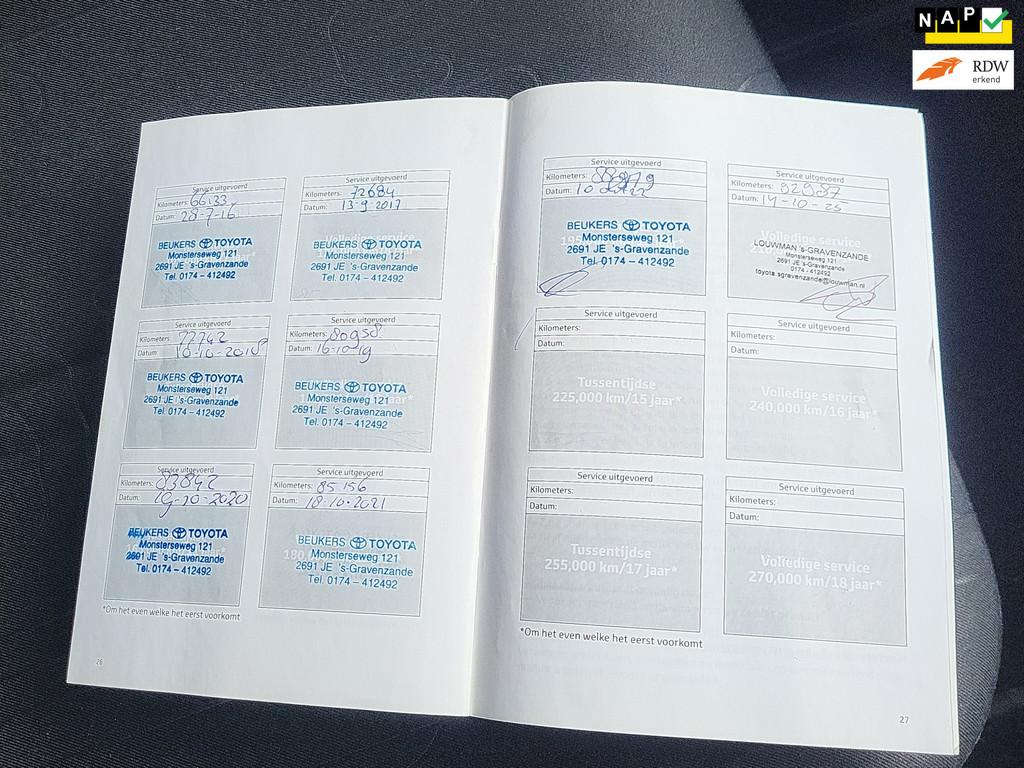 NAP
RDW
erkend
Service uitgevoerd
Kilometers: 66.33
Datum: 28-7-16
BEUKERS TOYOTA
Monsterseweg 121
2691 JE 's-Gravenzande
Tel. 0174 – 412492
Service uitgevoerd
Kilometers: 72684
Datum: 13-9-2017
BEUKERS TOYOTA
Monsterseweg 121
2691 JE 's-Gravenzande
Tel. 0174 – 412492
Service uitgevoerd
Kilometers: 77742
Datum: 10-10-2018
BEUKERS TOYOTA
Monsterseweg 121
2691 JE 's-Gravenzande
Tel. 0174 – 412492
Service uitgevoerd
Kilometers: 80958
Datum: 16-10-19
BEUKERS TOYOTA
Monsterseweg 121
2691 JE 's-Gravenzande
Tel. 0174 – 412492
Service uitgevoerd
Kilometers: 83842
Datum: 19-10-2020
BEUKERS TOYOTA
Monsterseweg 121
2691 JE 's-Gravenzande
Tel. 0174 – 412492
Service uitgevoerd
Kilometers: 85156
Datum: 18-10-2021
BEUKERS TOYOTA
Monsterseweg 121
2691 JE 's-Gravenzande
Tel. 0174 – 412492
*Om het even welke het eerst voorkomt
26
Service uitgevoerd
Kilometers:
Datum: 10
BEUKERS TOYOTA
Monsterseweg 121
2691 JE 's-Gravenzande
Tel. 0174 – 412492
Service uitgevoerd
Kilometers: 92987
Datum: 14-10-25
Volledige service
LOUWMAN 's-GRAVENZANDE
Monsterseweg 121
2691 JE 's-Gravenzande
0174 - 412492
toyota.sgravenzande@louwman.nl
Service uitgevoerd
Kilometers:
Datum:
Tussentijdse
225,000 km/15 jaar*
Service uitgevoerd
Kilometers:
Datum:
Volledige service
240,000 km/16 jaar*
Service uitgevoerd
Kilometers:
Datum:
Tussentijdse
255,000 km/17 jaar*
Service uitgevoerd
Kilometers:
Datum:
Volledige service
270,000 km/18 jaar*
*Om het even welke het eerst voorkomt
27